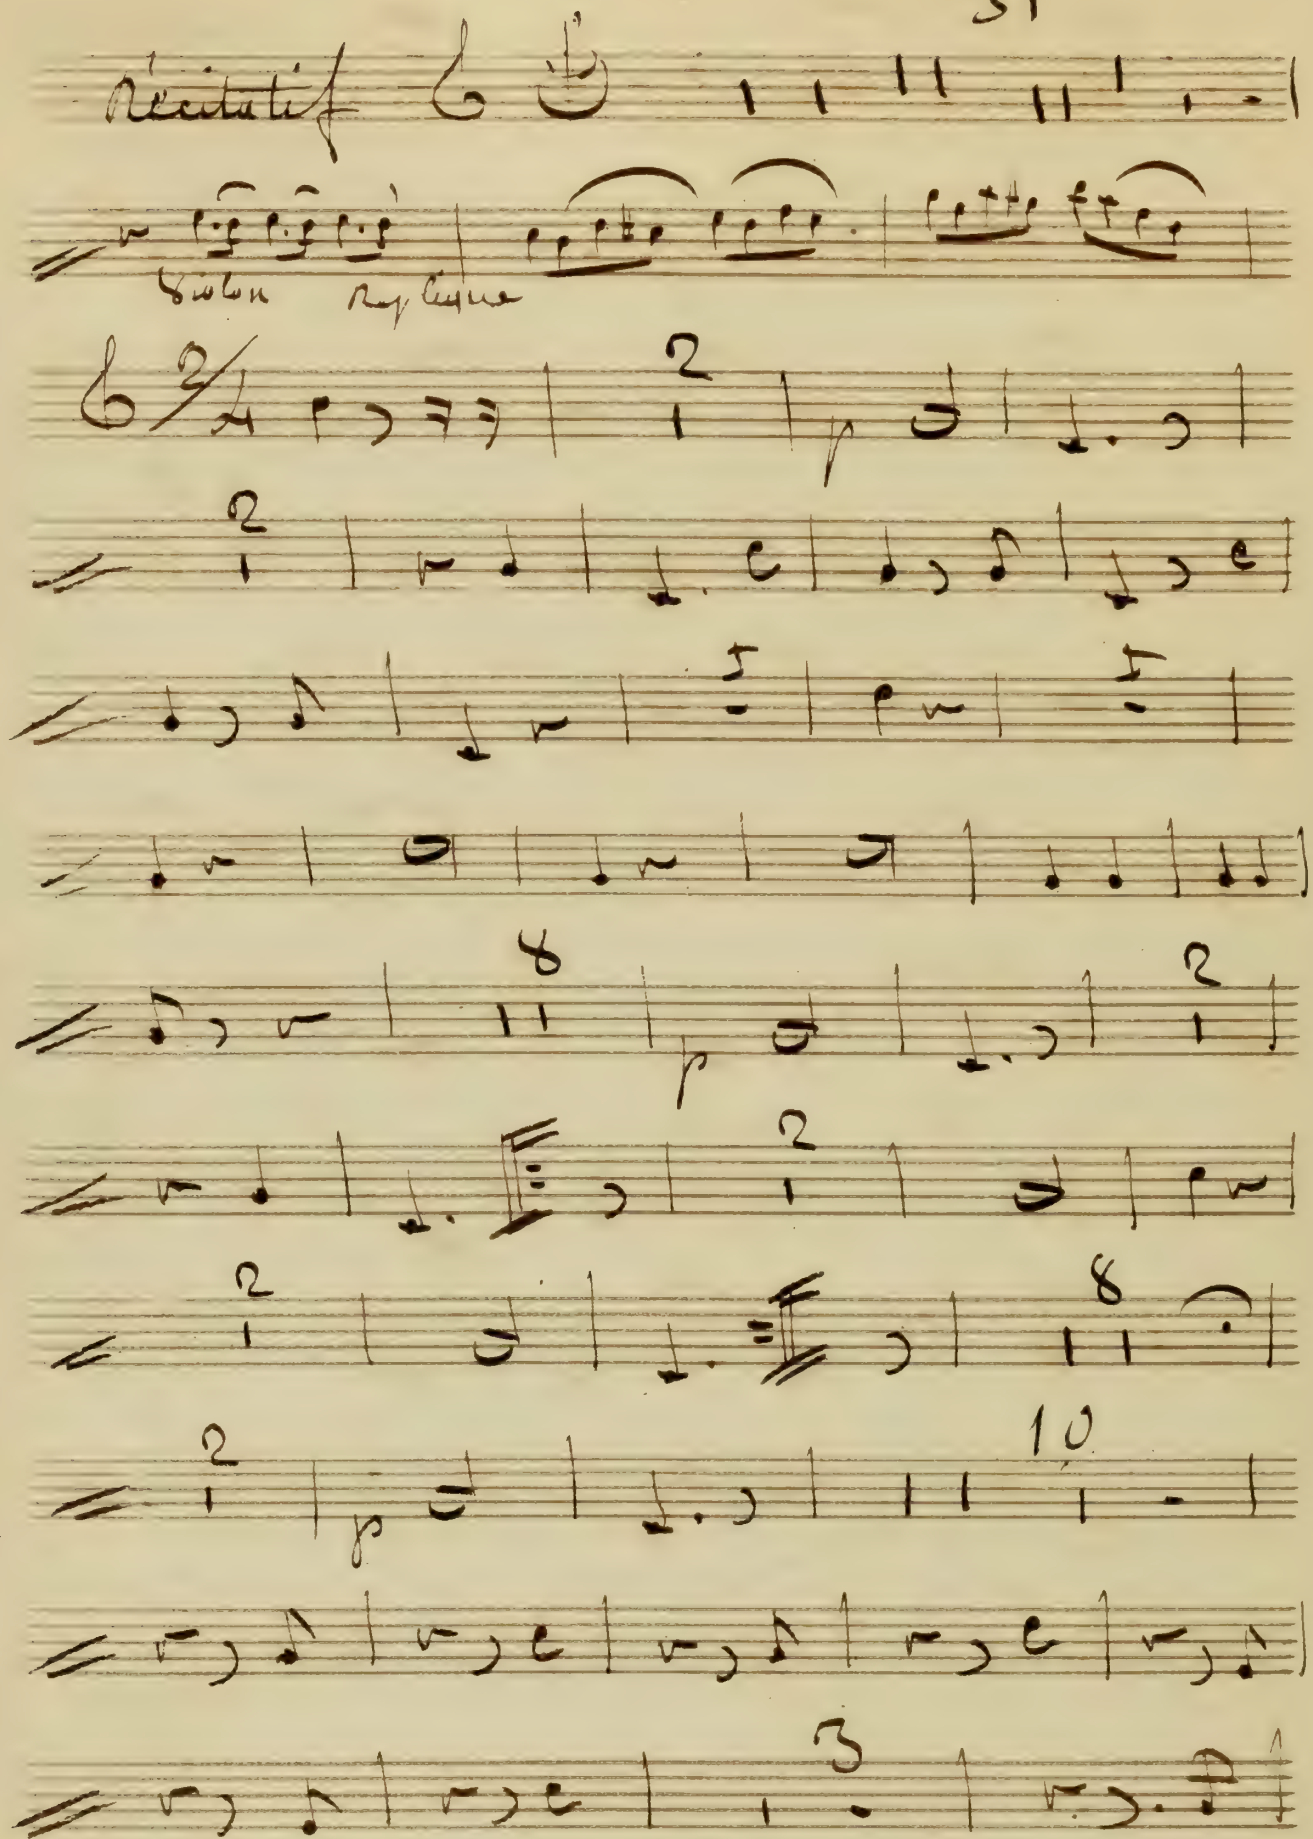 31
Récitatif
Violon Replique
2/4 2
p
2
5 5
8 2
p
2
2 8
2 10
p
3